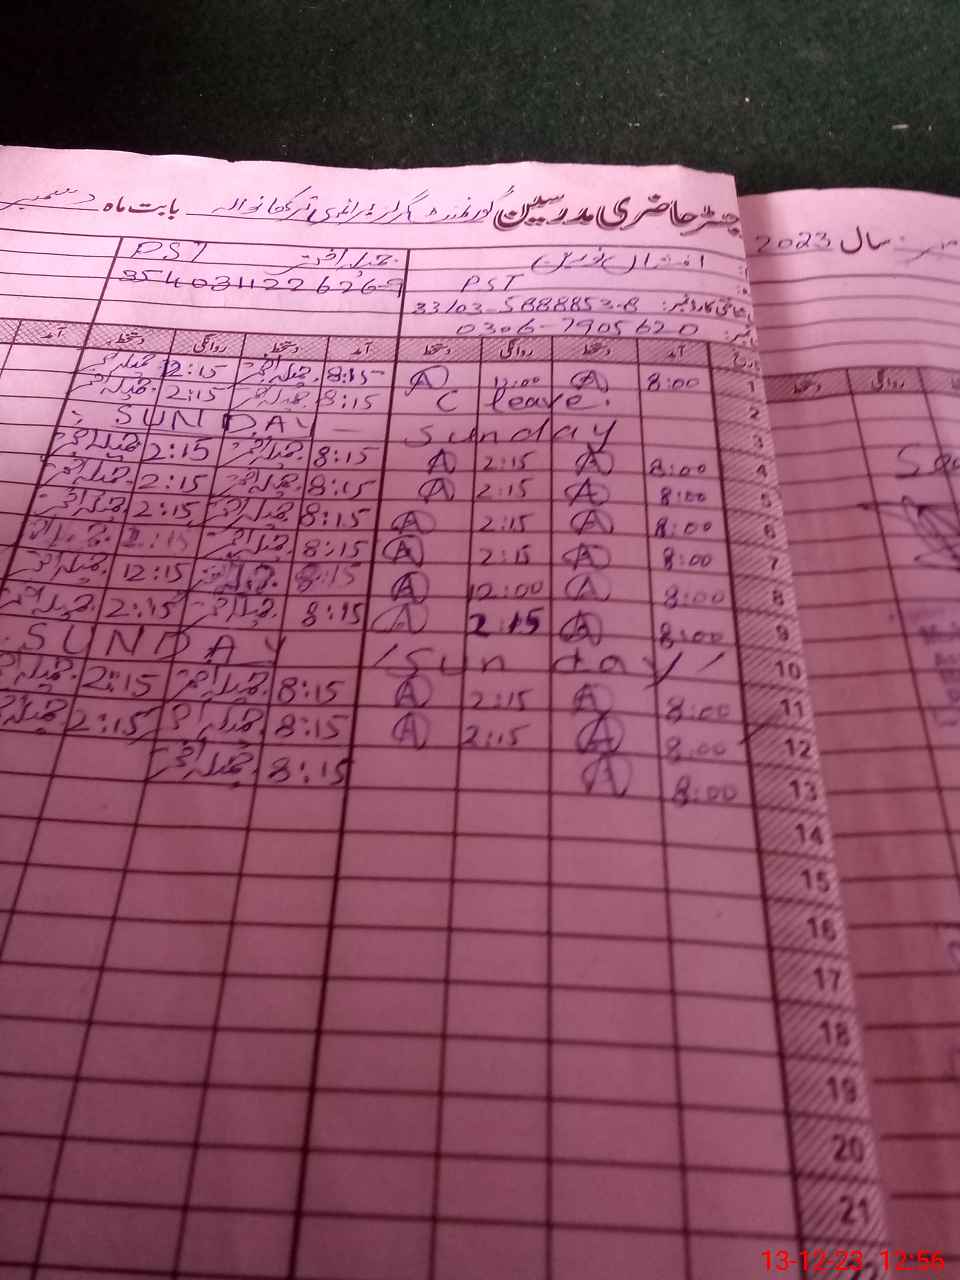 رجسٹر حاضری مدرسین گورنمنٹ گرلز پرائمری بابت ماہ دسمبر
سال 2023
PST جمیلہ اختر
PST
33103-5888853-8
0306-7905620
تاریخ آمد دستخط روانگی دستخط آمد دستخط روانگی دستخط آمد
دستخط روانگی
1 8:00 A 12:00 A 8:15 جمیلہ اختر 12:15 جمیلہ اختر
2 C leave. 8:15 جمیلہ اختر 2:15 جمیلہ اختر
3 Sunday SUNDAY
4 8:00 A 2:15 A 8:15 جمیلہ اختر 2:15 جمیلہ اختر
5 8:00 A 2:15 A 8:15 جمیلہ اختر 2:15 جمیلہ اختر
6 8:00 A 2:15 A 8:15 جمیلہ اختر 2:15 جمیلہ اختر
7 8:00 A 2:15 A 8:15 جمیلہ اختر 2:15
8 8:00 A 12:00 A 8:15 جمیلہ اختر 12:15 جمیلہ اختر
9 8:00 A 2:15 A 8:15 جمیلہ اختر 2:15 جمیلہ اختر
10 Sunday SUNDAY
11 8:00 A 2:15 A 8:15 جمیلہ اختر 2:15 جمیلہ اختر
12 8:00 A 2:15 A 8:15 جمیلہ اختر 2:15 جمیلہ اختر
13 8:00 A 8:15 جمیلہ اختر
14
15
16
17
18
19
20
21
13-12-23 12:56